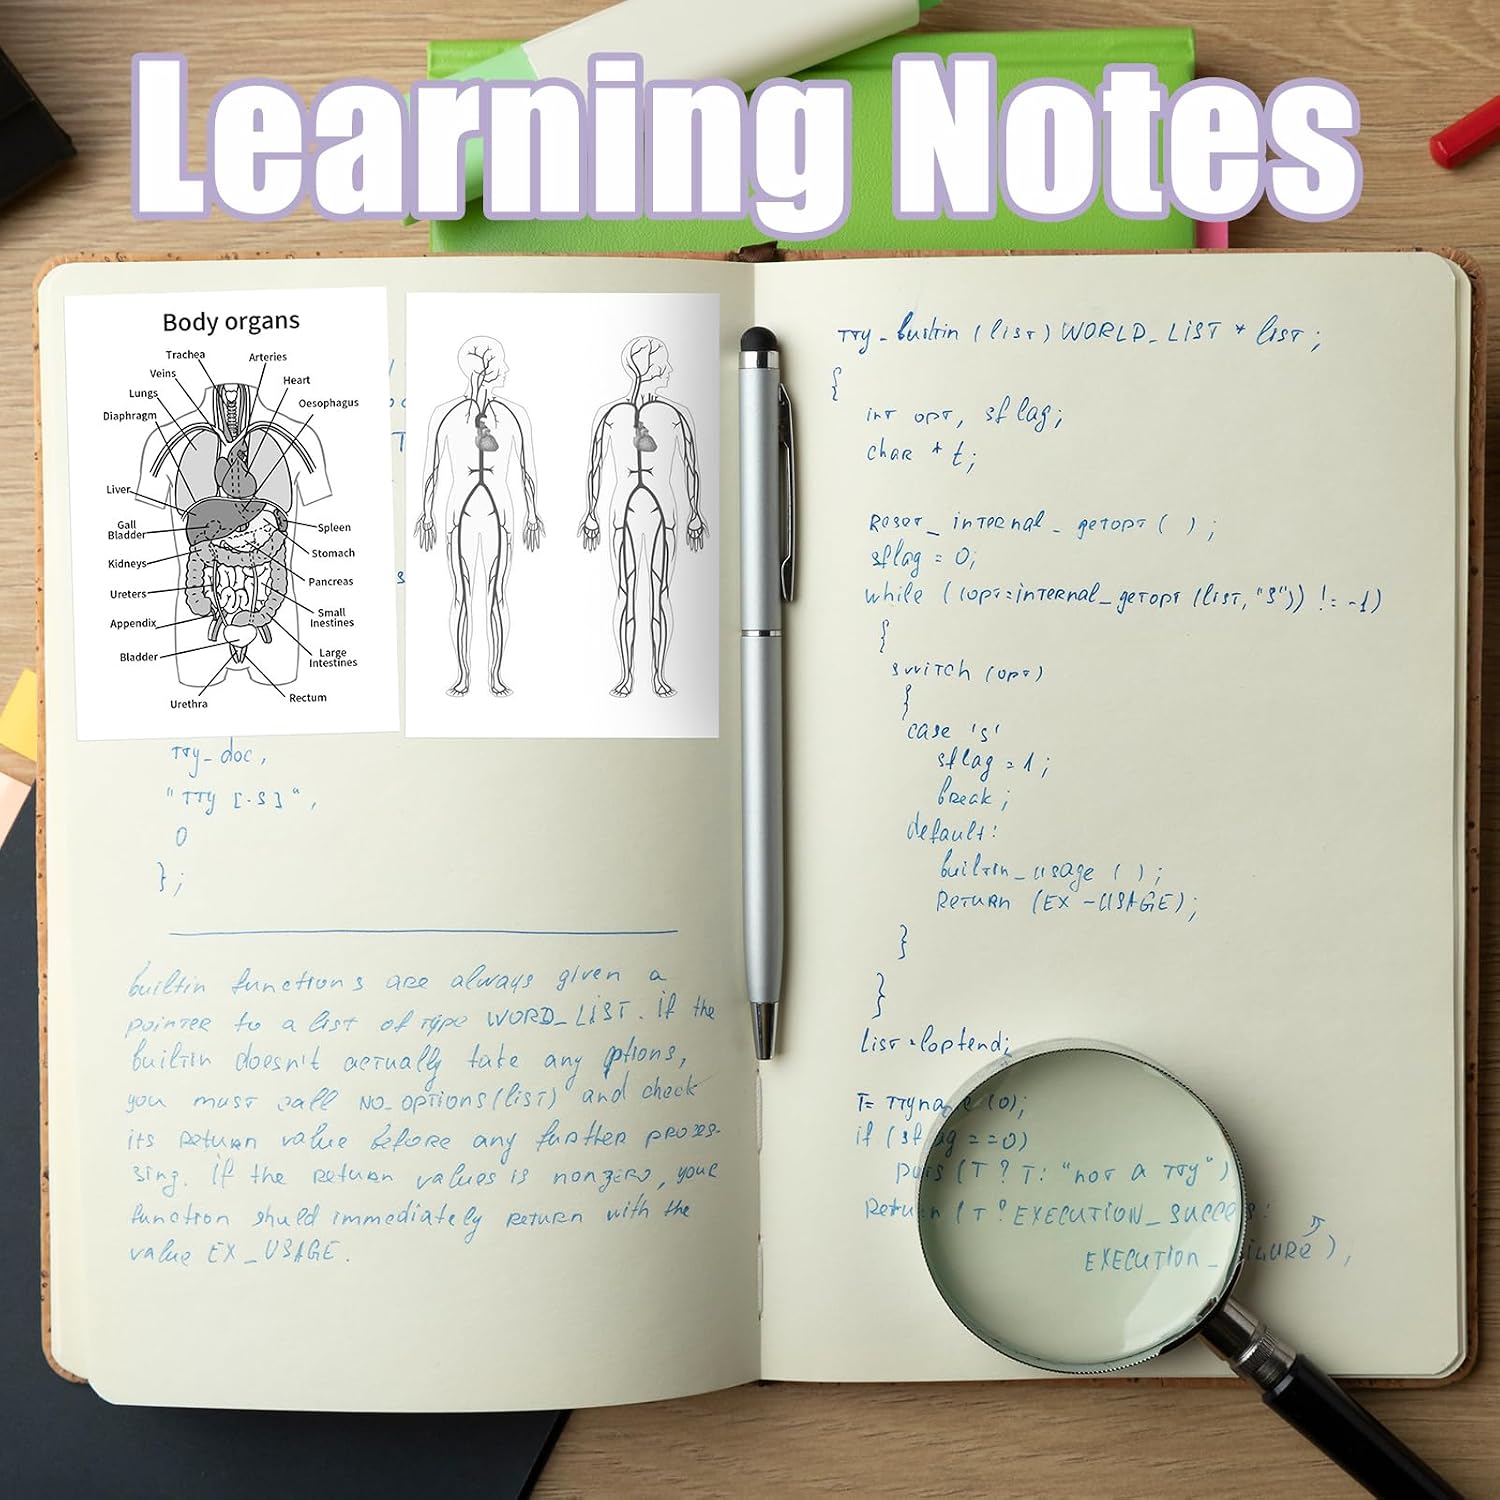 Learning Notes
Body organs
Trachea
Arteries
Veins
Heart
Lungs
Oesophagus
Diaphragm
Liver
Gall
Bladder
Spleen
Kidneys
Stomach
Pancreas
Ureters
Small
Inestines
Appendix
Large
Intestines
Bladder
Rectum
Urethra
tty_doc,
"tty [-s]",
0
};
builtin functions are always given a
pointer to a list of type WORD_LIST. if the
builtin doesn't actually take any options,
you must call no_options(list) and check
its return value before any further proces-
sing. if the return values is nonzero, your
function shuld immediately return with the
value EX_USAGE.
tty_builtin (list) WORLD_LIST * list;
{
int opt, sflag;
char * t;
Reset_internal_getopt ( );
sflag = 0;
while ((opt=internal_getopt (list, "S")) != -1)
{
switch (opt)
{
case 's'
sflag = 1;
break;
default:
builtin_usage ( );
Return (EX -USAGE);
}
}
List = loptend;
T= ttyname (0);
if (sflag ==0)
puts (T ? T: "not a tty")
Return (T ? EXECUTION_SUCCESS:
EXECUTION_FAILURE),